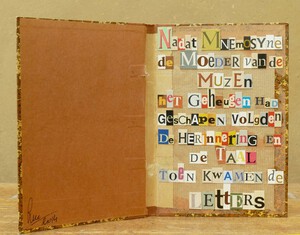 Nadat MNEMOSYNE
de MOEDER van de
MUZEN
hET GeheugEN HAD
GESCHAPEN VOLgDEN
De HERINNERING EN
DE TAAL
TOEN KWAMEN de
LETTERS